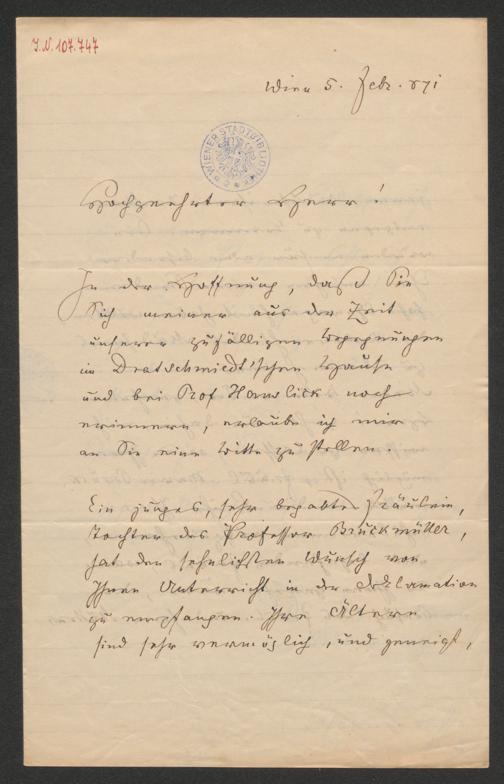 I.N. 107.747
Wien 5. Febr. 871
WIENER STADTBIBLIOTHEK
Hochgeehrter Herr!
In der Hoffnung, daß Sie
Sich meiner aus der Zeit
unserer zufälligen Begegnungen
im Dratschmiedt'schen Hause
und bei Prof Hanslick noch
erinnern, erlaube ich mir
an Sie eine Bitte zu stellen.
Ein junges, sehr begabtes Fräulein,
Tochter des Professor Bruckmüller,
hat den sehnlichsten Wunsch von
Ihnen Unterricht in der Deklamation
zu empfangen. Ihre Ältern
sind sehr vermöglich, und geneigt,